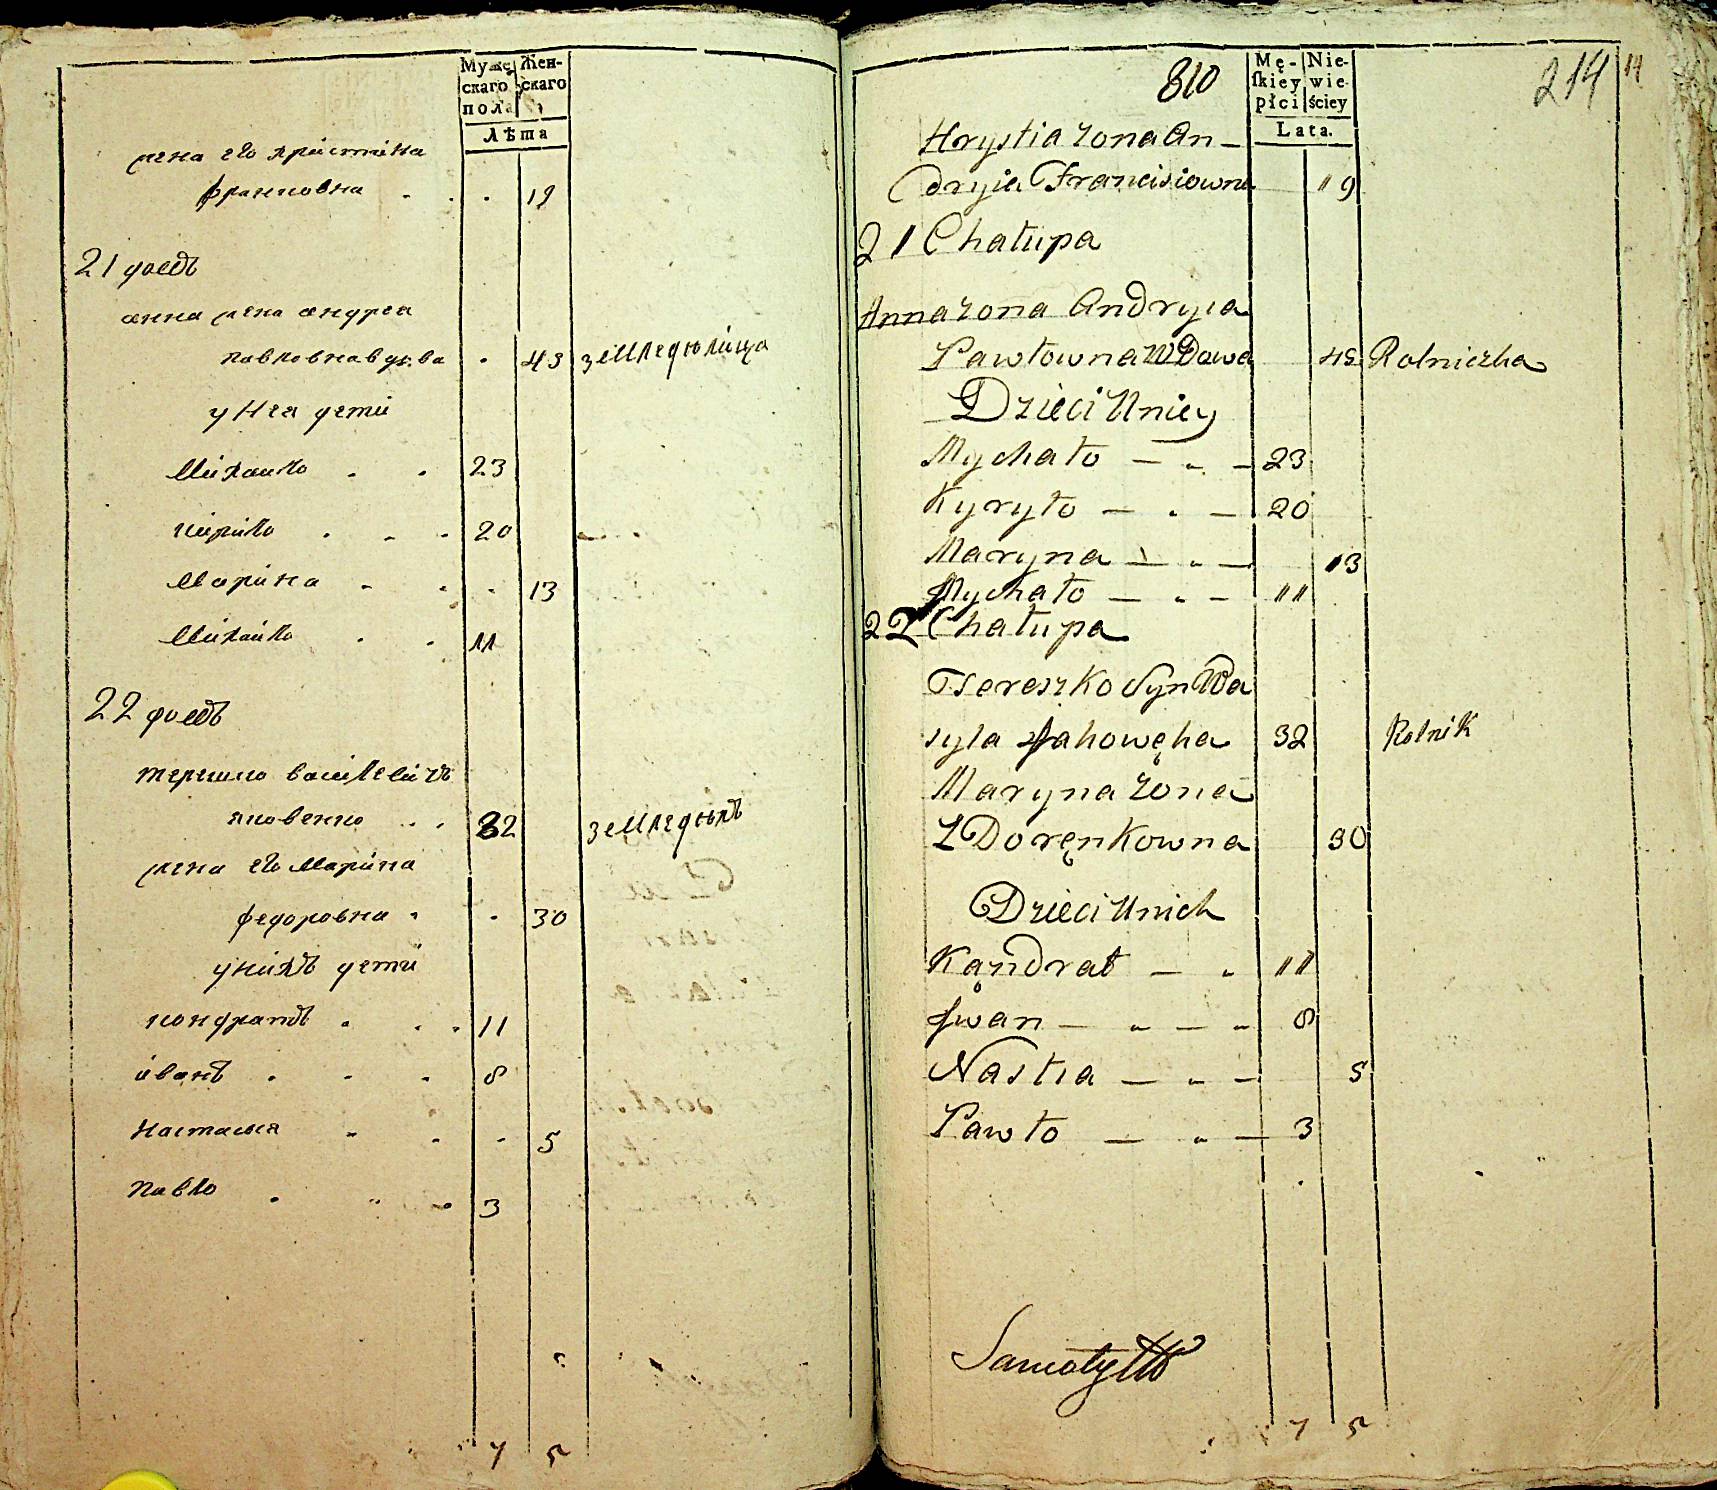 Мужескаго пола
Женскаго
Лѣта
жена его христина
францовна . . . 19
21 домъ
анна жена андрея
павловна вдова . 43 земледѣлица
у Нея дети
Михайло . . 23
кирило . . . 20
Марина . . . 13
Михайло . . 11
22 домъ
терешко василевичъ
яковенко . . 32 земледѣлъ
жена его Марина
федоровна . . 30
у нихъ дети
кондратъ . . . 11
иванъ . . . 8
Настасья . . . 5
павло . . . 3
7 5
810
214
14
Męskiey płci
Niewieściey
Lata.
Hrystia żona An-
dryia Francisiowna 19
21 Chałupa
Anna żona Andryia
Pawłowna Wdowa 43 Rolniczka
Dzieci U niey
Mychało — „ — 23
Kyryło — „ — 20
Maryna — „ — 13
Mychało — „ — 11
22 Chałupa
Tereszko Syn Wa
syla Jakowęka 32 Rolnik
Maryna żona
Doręnkowna 30
Dzieci U nich
Kąndrat — „ 11
Jwan — „ — „ 8
Nastia — „ — 5
Pawło — „ — 3
7 5